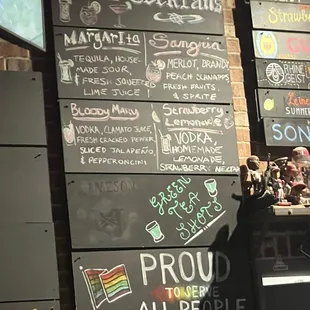 Cocktails
Margarita
Tequila, House-
made sour,
Fresh squeezed
Lime juice
Sangria
Merlot, Brandy
Peach schnapps
Fresh fruits,
& Sprite
Bloody Mary
Vodka, Clamato juice,
Fresh cracked pepper,
Sliced jalapeño
& pepperoncini
Strawberry
Lemonade
Vodka,
Homemade
Lemonade,
Strawberry
Green
Tea
Shot
Proud
to serve
All People
Strawberry
Pineg
Geist
Summer
Son